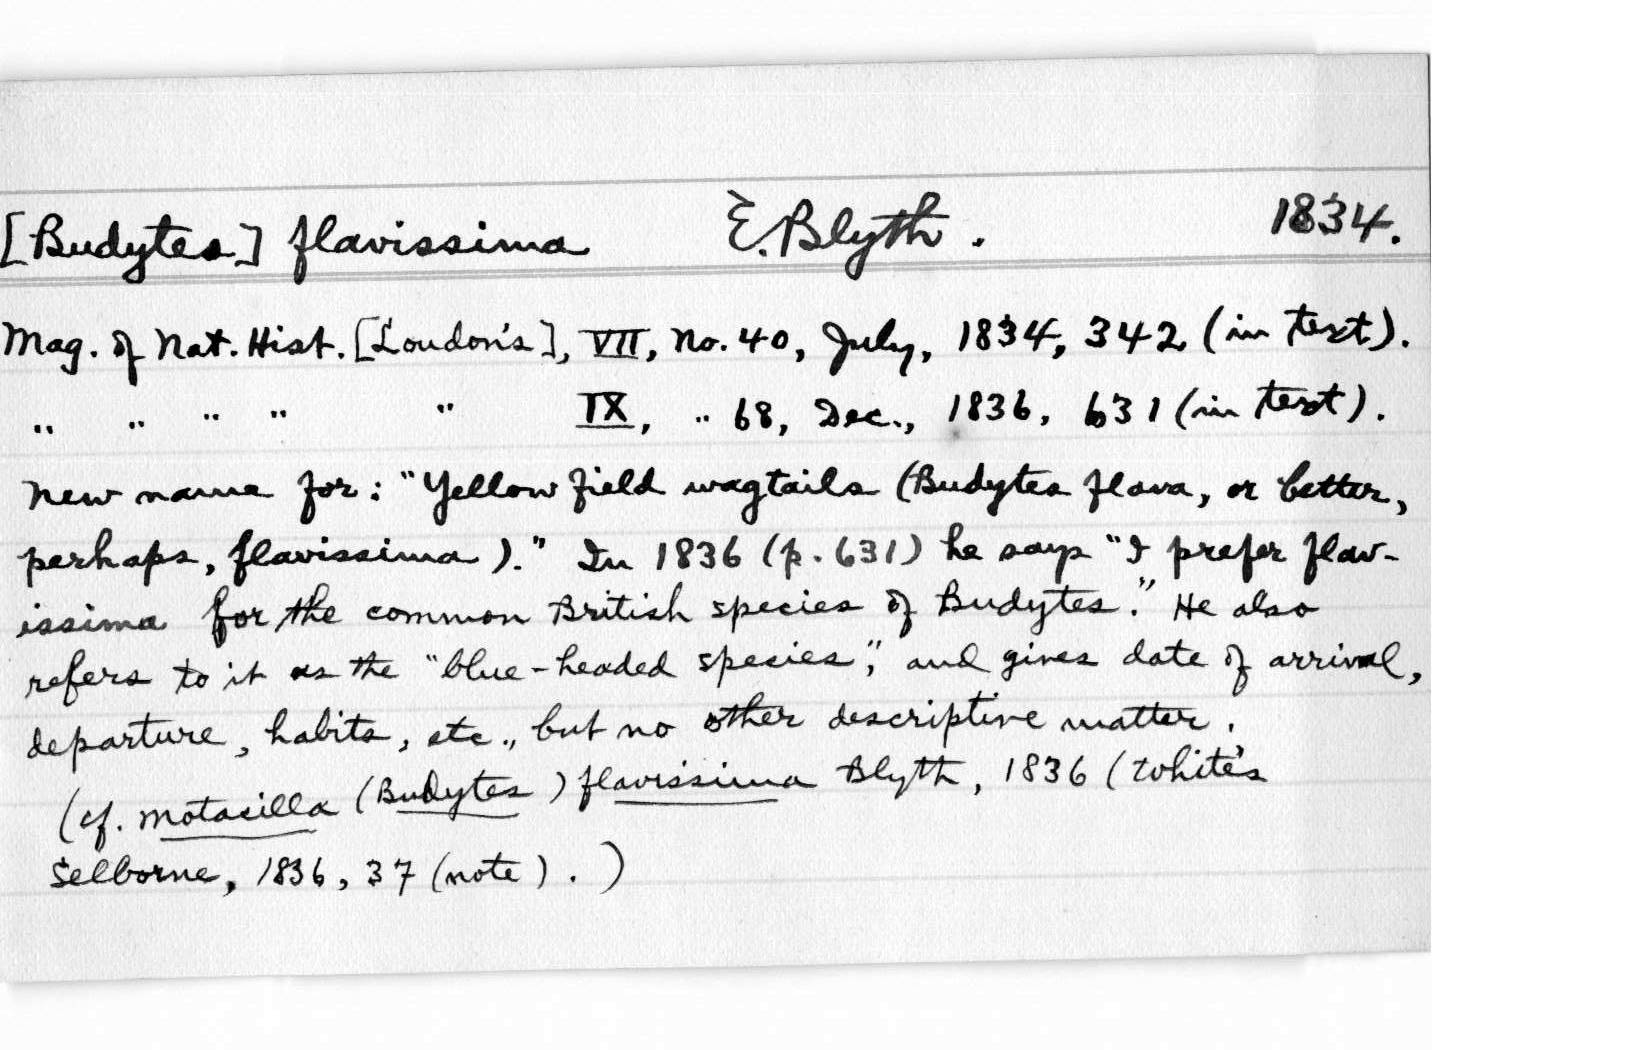 [Budytes] flavissima E. Blyth. 1834.
Mag. of Nat. Hist. [Loudon's], VII, No. 40, July, 1834, 342 (in text).
" " " " " IX, " 68, Dec., 1836, 631 (in text).
New name for: "Yellow field wagtails (Budytes flava, or better,
perhaps, flavissima)." In 1836 (p. 631) he says "I prefer flav-
issima for the common British species of Budytes." He also
refers to it as the "blue-headed species", and gives date of arrival,
departure, habits, etc., but no other descriptive matter.
(cf. Motacilla (Budytes) flavissima Blyth, 1836 (White's
Selborne, 1836, 37 (note). )